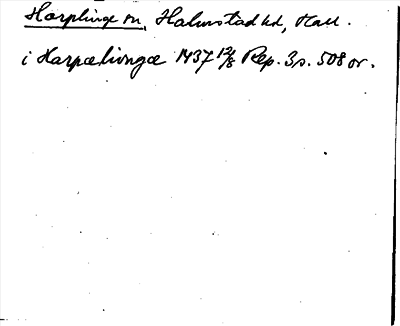 Harplinge sn, Halmstad hd, Hall.
i Harpælinngæ 1437 12/8 Rep. 3 s. 508 or.